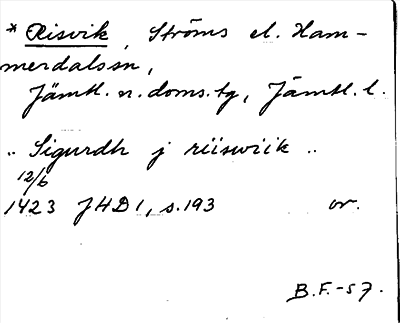 * Risvik, Ströms el. Ham-
merdalssn,
Jämtl. n. doms.tg, Jämtl. l.
.. Sigurdh j riiswiik ..
12/6
1423 JHD 1, s. 193 or.
B.F.-57.